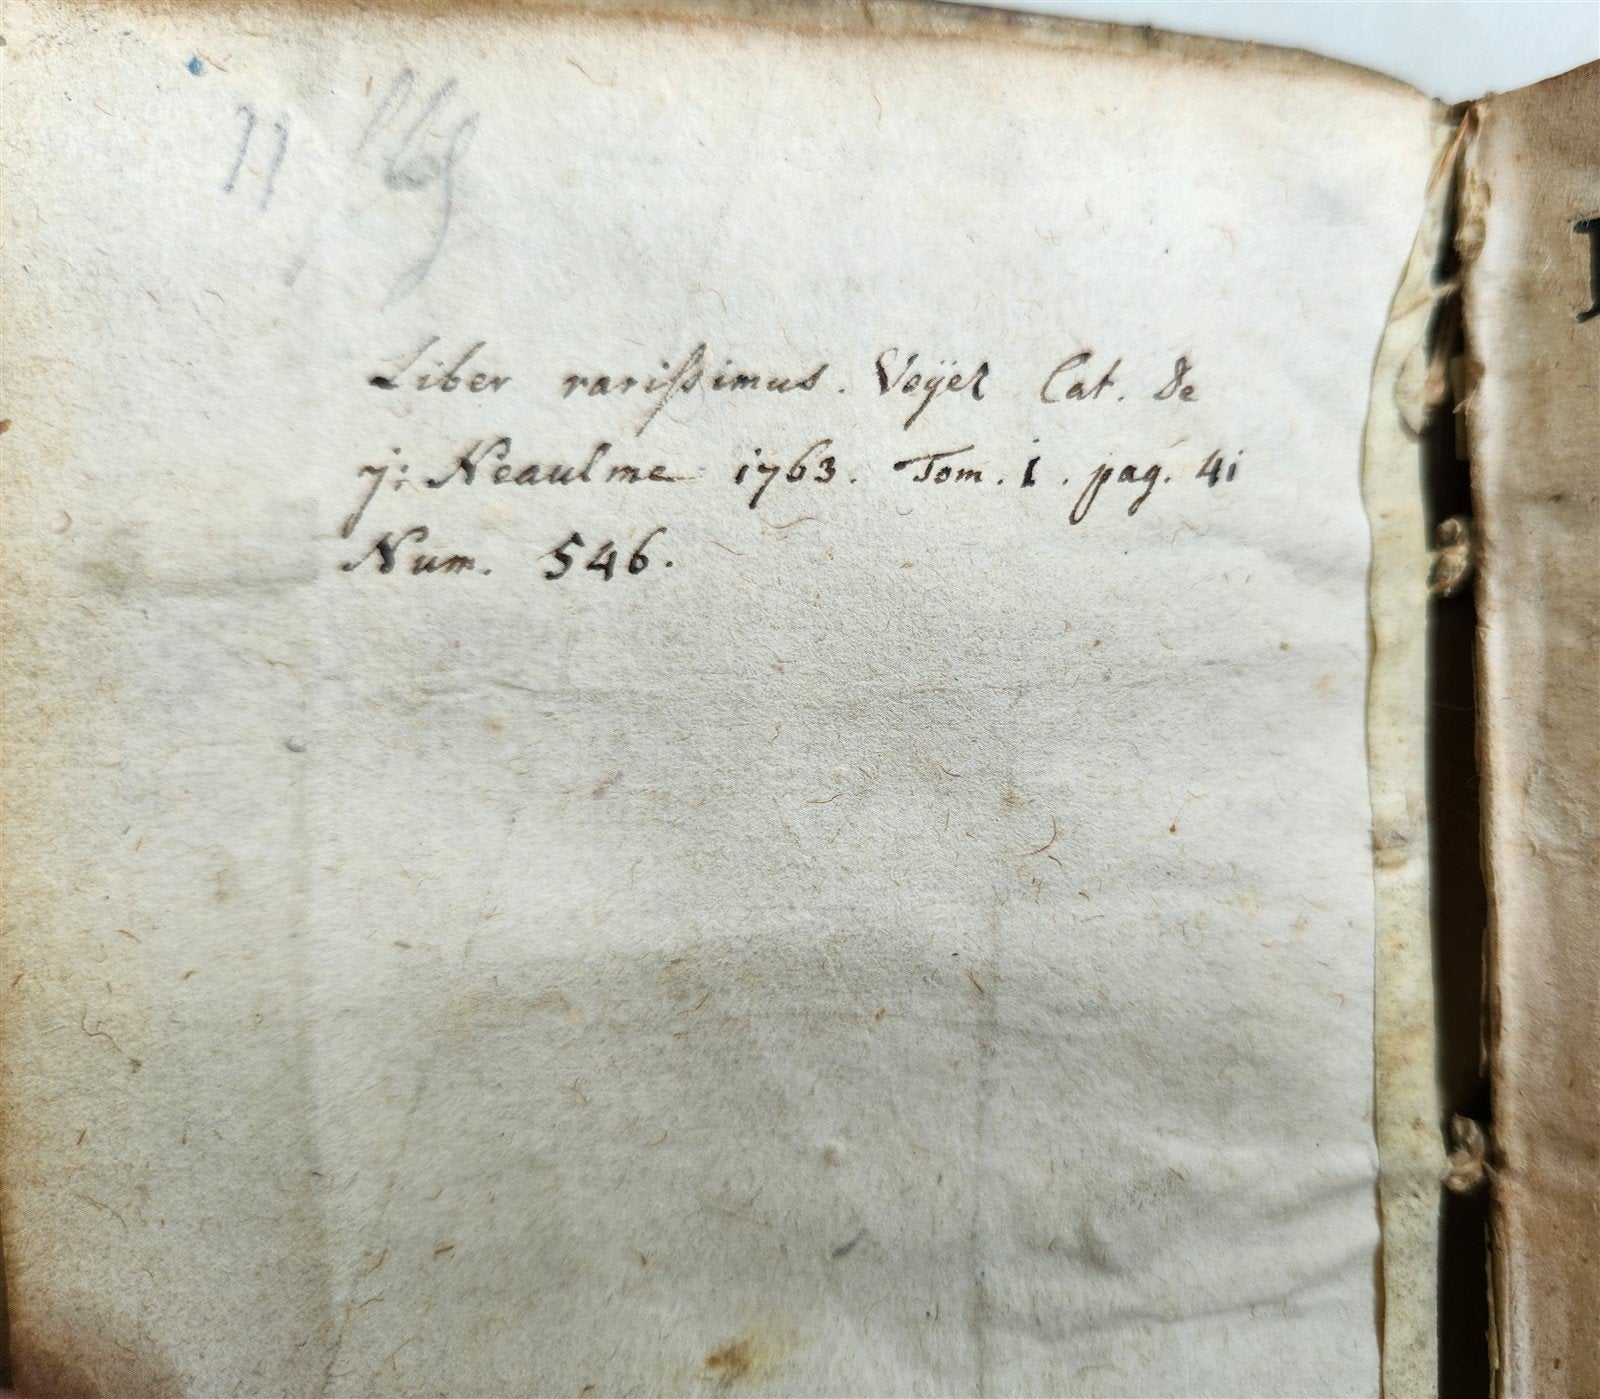 11
Liber rarissimus. Voÿez Cat. de
J: Neaulme 1763. Tom. 1. pag. 41
Num. 546.